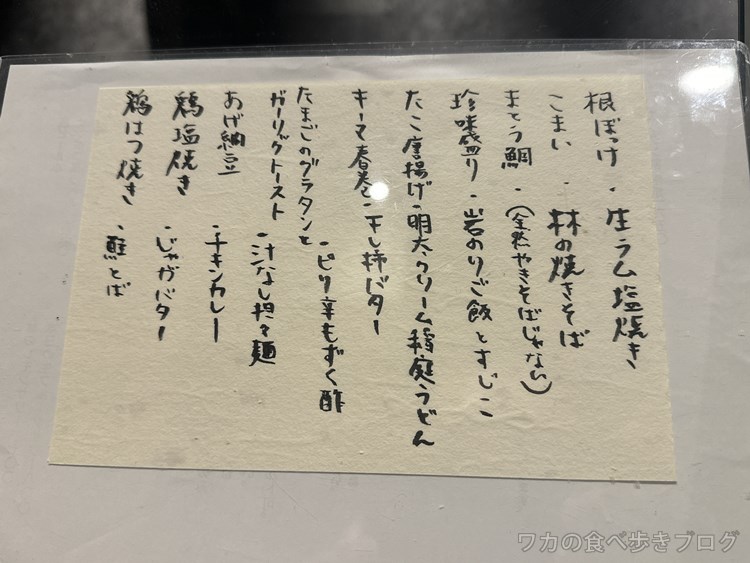 根ぼっけ ・生ラム塩焼き
こまい ・林の焼きそば
まとう鯛 ・(全然やきそばじゃない)
珍味盛り ・岩のりご飯とすじこ
たこ唐揚げ ・明太クリーム稲庭うどん
キーマ春巻き ・干し柿バター
たまごのグラタンと ・ピリ辛もずく酢
ガーリックトースト ・汁なし担々麺
あげ納豆 ・チキンカレー
鶏塩焼き ・じゃがバター
鶏はつ焼き ・鮭とば
ワカの食べ歩きブログ